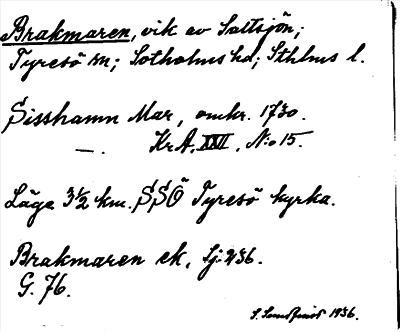 Brakmaren, vik av Saltsjön;
Tyresö sn; Sotholms hd; Sthlms l.
Sisshamn Mar, omkr. 1730.
—. KrA, XXVI, No 15.
Läge 3½ km. SSÖ Tyresö kyrka.
Brakmaren ek.
G. 76.
1936.